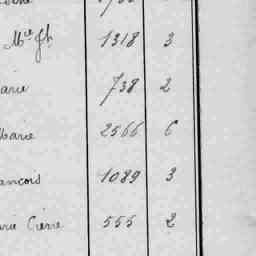 Mie Jh 1318 3
arie 738 2
Marie 2566 6
ancois 1089 3
rie Pierre 555 2